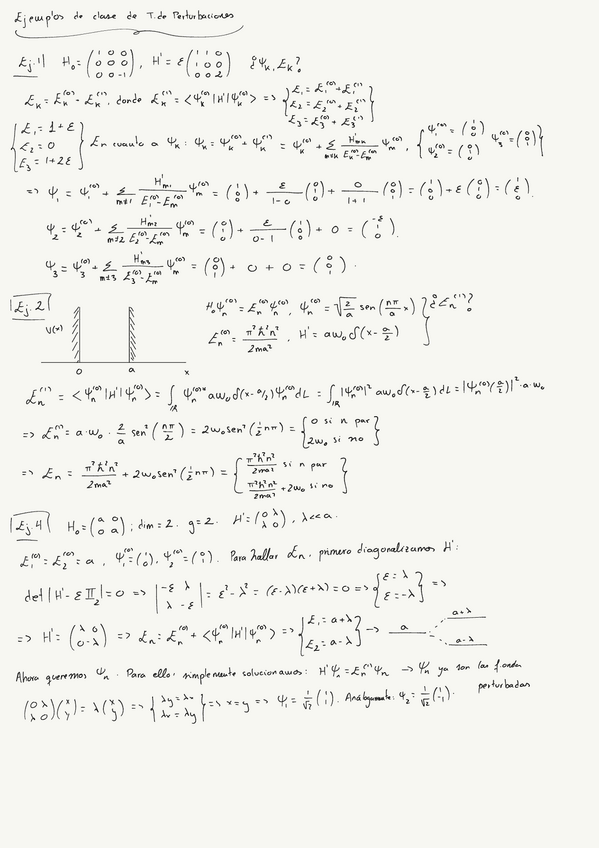 Ejemplos de clase de T. de Perturbaciones
Ej.1 H₀ = (1 0 0; 0 0 0; 0 0 -1), H' = ε(1 1 0; 1 0 0; 0 0 2) ¿Ψₖ, Eₖ?
Eₖ = Eₖ⁽⁰⁾ - Eₖ⁽¹⁾, donde Eₖ⁽¹⁾ = <Ψₖ⁽⁰⁾|H'|Ψₖ⁽⁰⁾> => {E₁ = E₁⁽⁰⁾ + E₁⁽¹⁾; E₂ = E₂⁽⁰⁾ + E₂⁽¹⁾; E₃ = E₃⁽⁰⁾ + E₃⁽¹⁾}
{E₁ = 1 + ε; E₂ = 0; E₃ = 1 + 2ε} En cuanto a Ψₖ: Ψₖ = Ψₖ⁽⁰⁾ + Ψₖ⁽¹⁾ = Ψₖ⁽⁰⁾ + Σ_{m≠k} H'ₘₖ/(Eₖ⁽⁰⁾-Eₘ⁽⁰⁾) Ψₘ⁽⁰⁾, {Ψ₁⁽⁰⁾ = (1; 0; 0) Ψ₂⁽⁰⁾ = (0; 1; 0) Ψ₃⁽⁰⁾ = (0; 0; 1)}
=> Ψ₁ = Ψ₁⁽⁰⁾ + Σ_{m≠1} H'ₘ₁/(E₁⁽⁰⁾-Eₘ⁽⁰⁾) Ψₘ⁽⁰⁾ = (1; 0; 0) + ε/(1-0) (0; 1; 0) + 0/(1+1) (0; 0; 1) = (1; 0; 0) + ε(0; 1; 0) = (1; ε; 0).
Ψ₂ = Ψ₂⁽⁰⁾ + Σ_{m≠2} H'ₘ₂/(E₂⁽⁰⁾-Eₘ⁽⁰⁾) Ψₘ⁽⁰⁾ = (0; 1; 0) + ε/(0-1) (1; 0; 0) + 0 = (-ε; 1; 0).
Ψ₃ = Ψ₃⁽⁰⁾ + Σ_{m≠3} H'ₘ₃/(E₃⁽⁰⁾-Eₘ⁽⁰⁾) Ψₘ⁽⁰⁾ = (0; 0; 1) + 0 + 0 = (0; 0; 1).
Ej.2 V(x) 0 a x
H₀Ψₙ⁽⁰⁾ = Eₙ⁽⁰⁾Ψₙ⁽⁰⁾, Ψₙ⁽⁰⁾ = √(2/a) sen(nπ/a x) ¿Eₙ⁽¹⁾?
Eₙ⁽⁰⁾ = π²ħ²n²/2ma², H' = aw₀δ(x-a/2)
Eₙ⁽¹⁾ = <Ψₙ⁽⁰⁾|H'|Ψₙ⁽⁰⁾> = ∫_ℝ Ψₙ⁽⁰⁾* aw₀δ(x-a/2)Ψₙ⁽⁰⁾dL = ∫_ℝ |Ψₙ⁽⁰⁾|² aw₀δ(x-a/2)dL = |Ψₙ⁽⁰⁾(a/2)|²·a·w₀
=> Eₙ⁽¹⁾ = a·w₀·2/a sen²(nπ/2) = 2w₀sen²(½nπ) = {0 si n par; 2w₀ si no}
=> Eₙ = π²ħ²n²/2ma² + 2w₀sen²(½nπ) = {π²ħ²n²/2ma² si n par; π²ħ²n²/2ma² + 2w₀ si no}
Ej.4 H₀ = (a 0; 0 a); dim = 2. g = 2. H' = (0 λ; λ 0), λ<<a.
E₁⁽⁰⁾ = E₂⁽⁰⁾ = a, Ψ₁⁽⁰⁾ = (1; 0), Ψ₂⁽⁰⁾ = (0; 1). Para hallar Eₙ, primero diagonalizamos H':
det|H' - ε𝕀₂| = 0 => |-ε λ; λ -ε| = ε² - λ² = (ε-λ)(ε+λ) = 0 => {ε = λ; ε = -λ} =>
=> H' = (λ 0; 0 -λ) => Eₙ = Eₙ⁽⁰⁾ + <Ψₙ⁽⁰⁾|H'|Ψₙ⁽⁰⁾> => {E₁ = a+λ; E₂ = a-λ} → a a+λ a-λ
Ahora queremos Ψₙ. Para ello, simplemente solucionamos: H'Ψₙ = Eₙ⁽¹⁾Ψₙ → Ψₙ ya son las f. onda
perturbadas
(0 λ; λ 0)(x; y) = λ(x; y) => {λy = λx; λx = λy} => x = y => Ψ₁ = 1/√2 (1; 1). Análogamente: Ψ₂ = 1/√2 (1; -1).